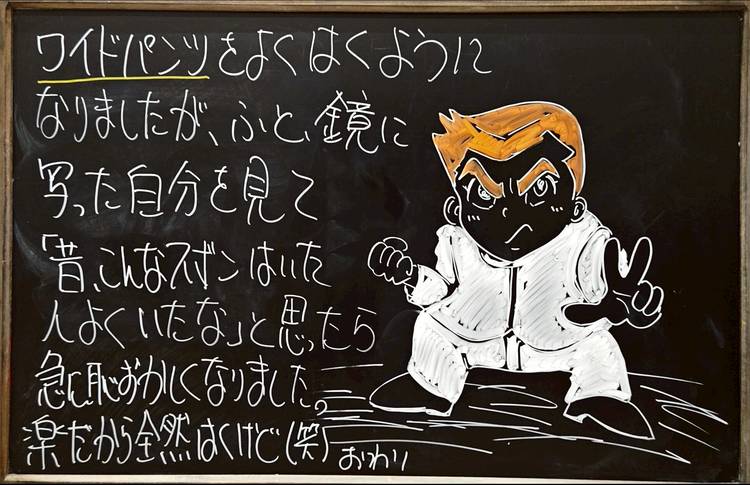 ワイドパンツをよくはくように
なりましたが、ふと、鏡に
写った自分を見て
「昔、こんなズボンはいた
人よくいたな」と思ったら
急に恥ずかしくなりました。
楽だから全然はくけど(笑)
おわり